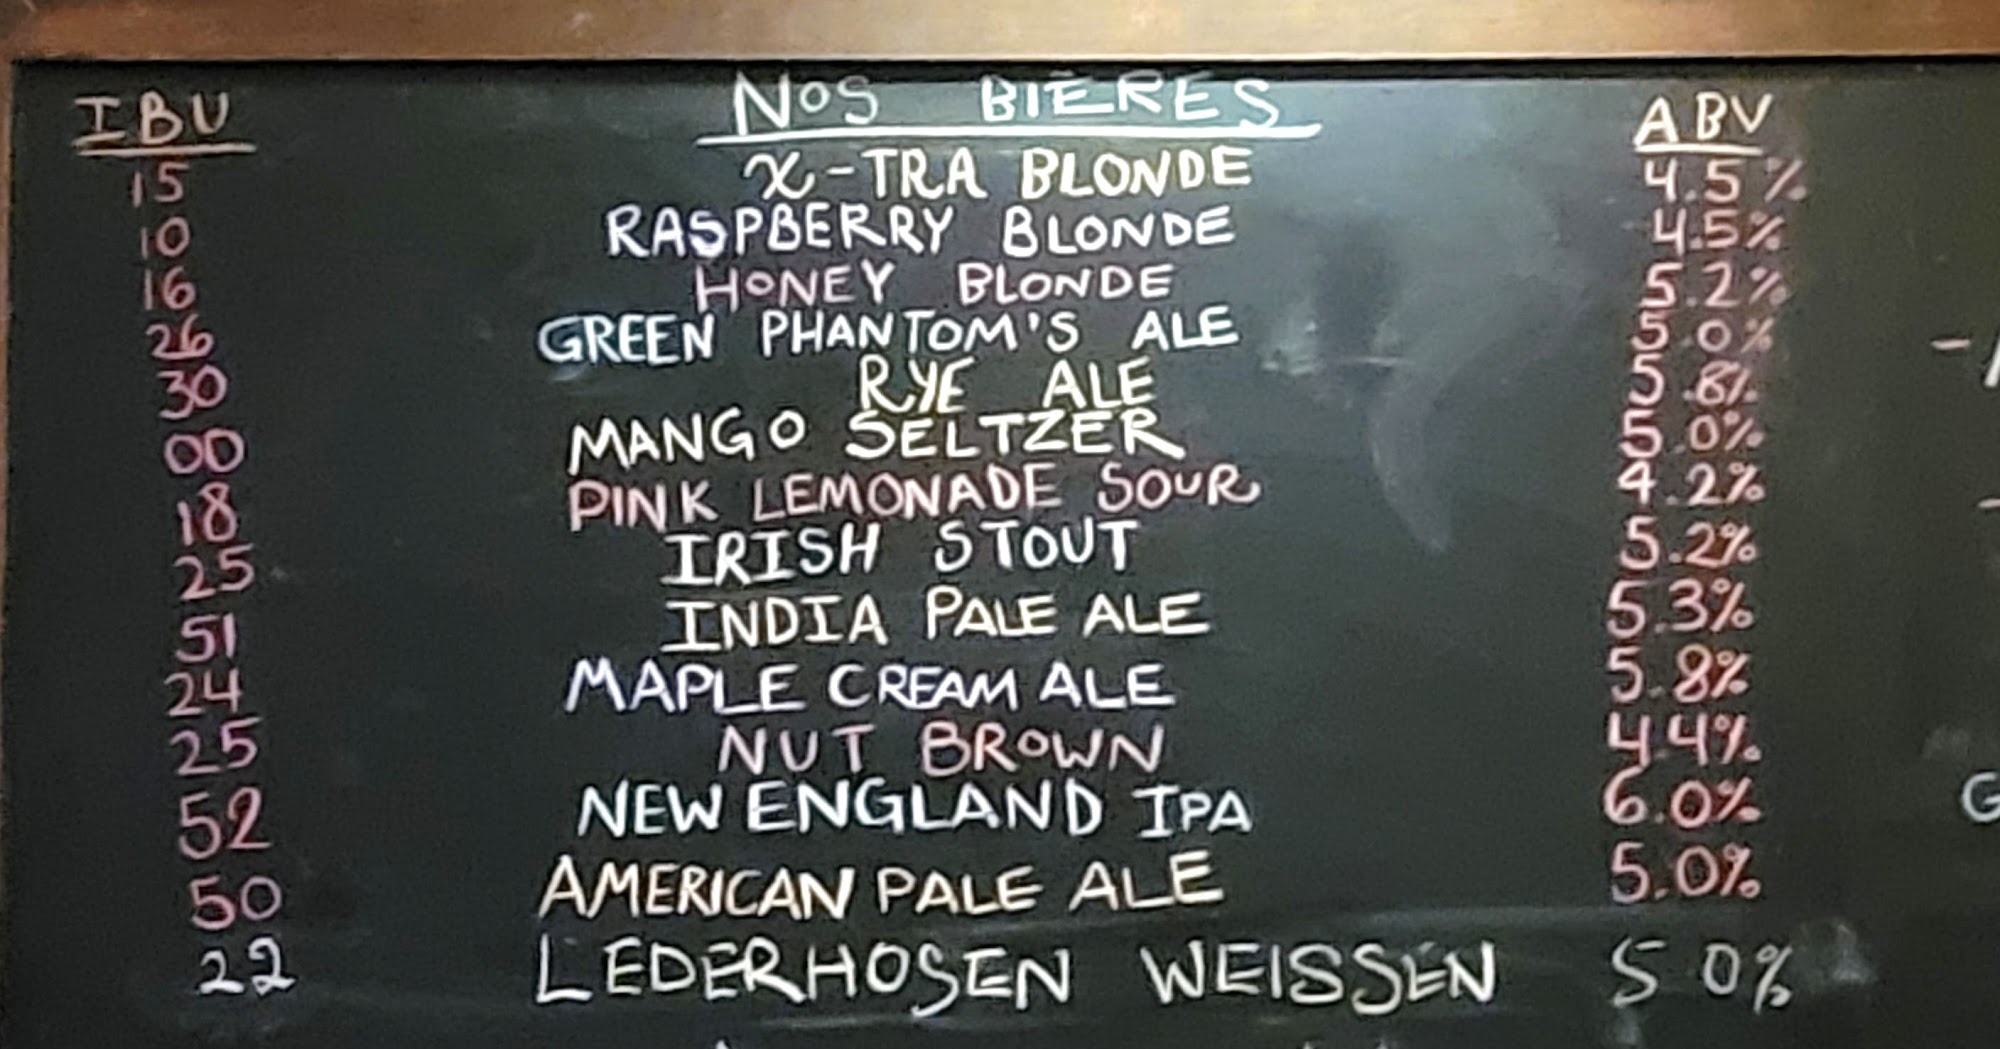 IBU NOS BIÈRES ABV
15 X-TRA BLONDE 4.5%
10 RASPBERRY BLONDE 4.5%
16 HONEY BLONDE 5.2%
26 GREEN PHANTOM'S ALE 5.0%
30 RYE ALE 5.8%
00 MANGO SELTZER 5.0%
18 PINK LEMONADE SOUR 4.2%
25 IRISH STOUT 5.2%
51 INDIA PALE ALE 5.3%
24 MAPLE CREAM ALE 5.8%
25 NUT BROWN 4.4%
52 NEW ENGLAND IPA 6.0%
50 AMERICAN PALE ALE 5.0%
22 LEDERHOSEN WEISSEN 5 0%